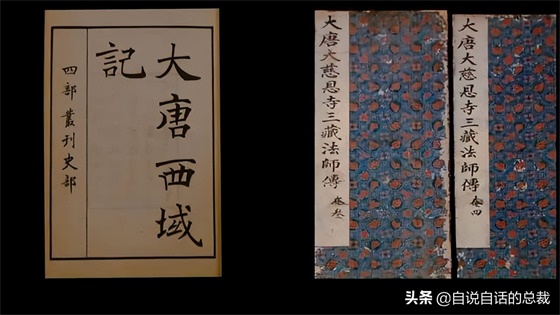 大唐西域
記
四部叢刊史部
大唐大慈恩寺三藏法師傳
卷叁
大唐大慈恩寺三藏法師傳
卷四
头条 @自说自话的总裁